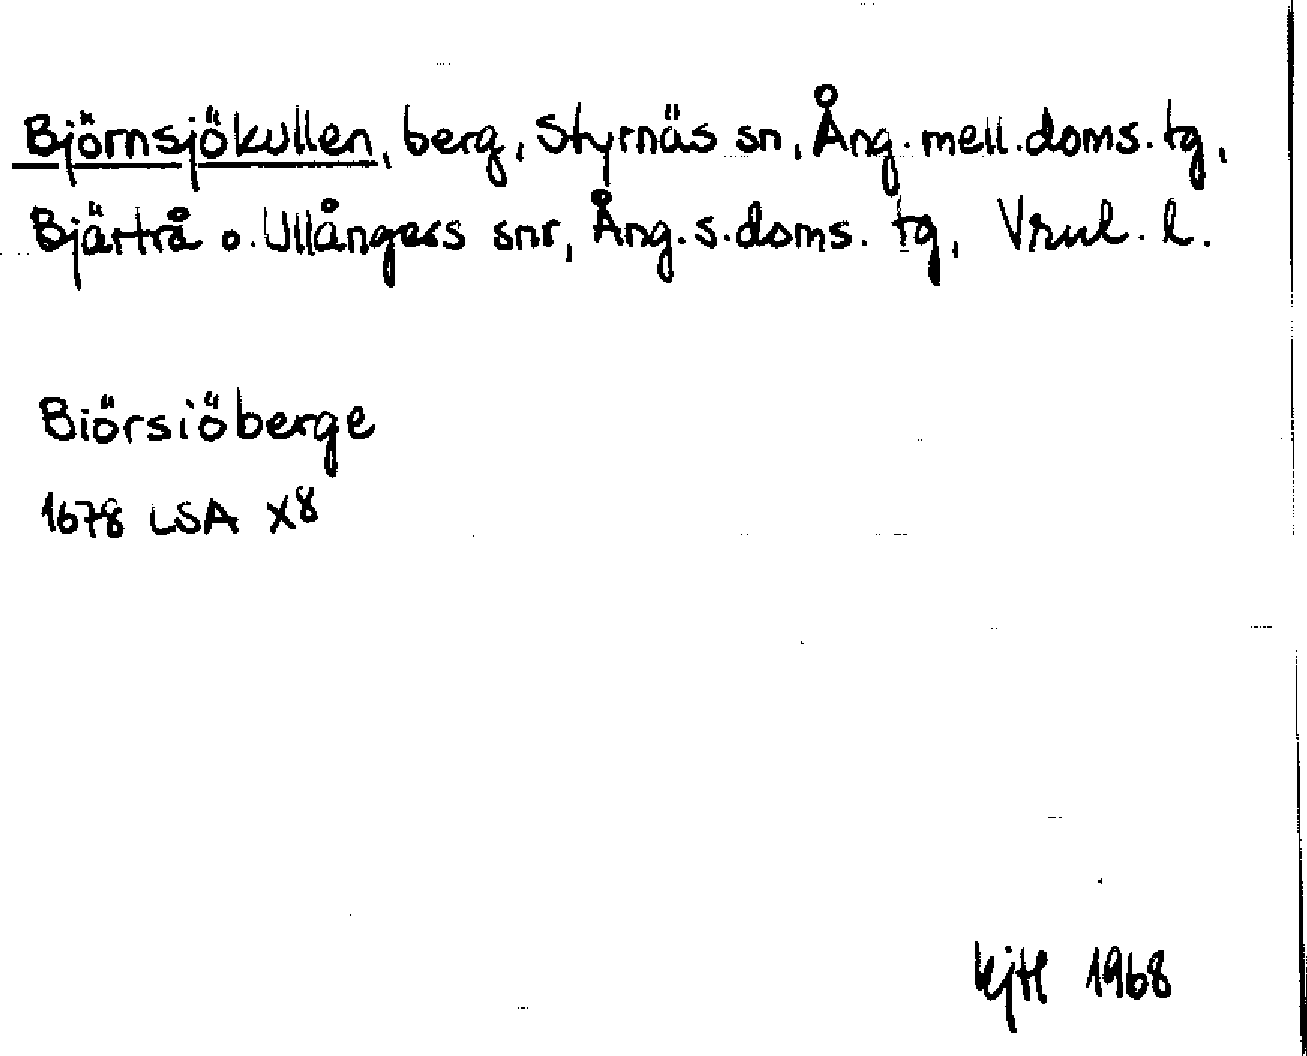 Björnsjökullen, berg, Styrnäs sn, Ång. mell. doms. tg,
Bjärtrå o. Ullångers snr, Ång. s. doms. tg, Vrnl. l.

Biörsiöberge
1678 LSA X8

KjH 1968